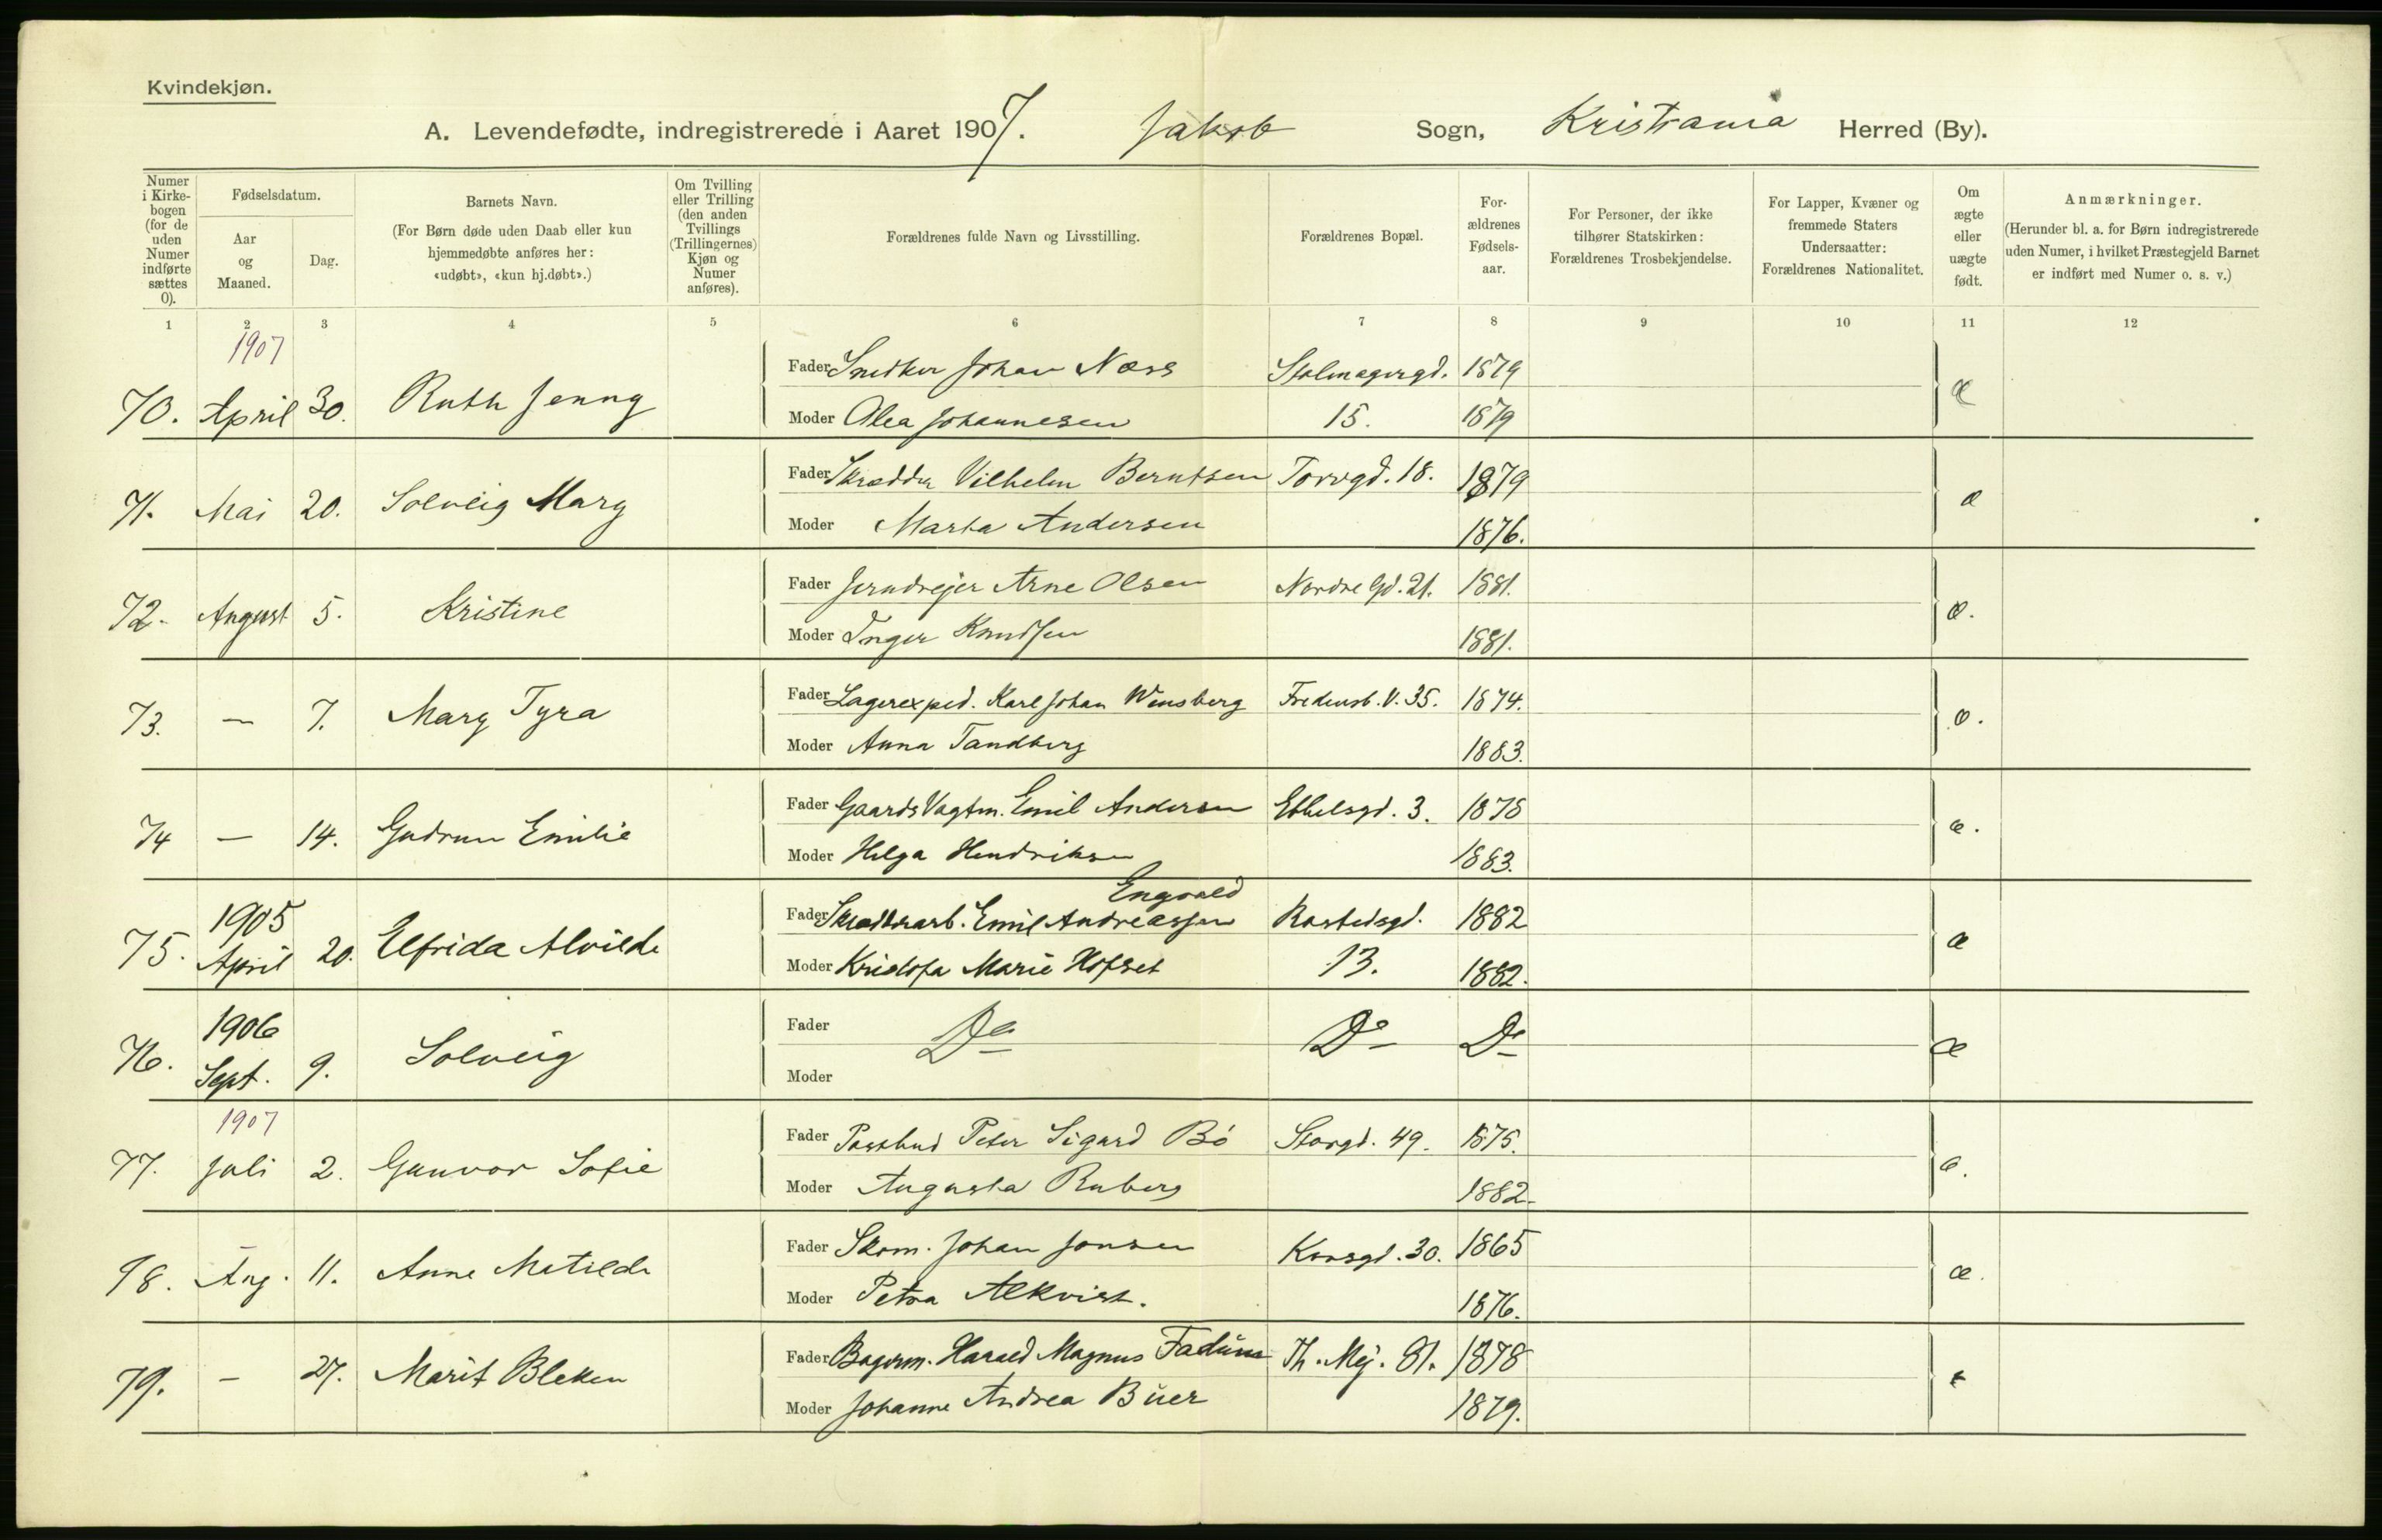 Kvindekjøn.
A. Levendefødte, indregistrerede i Aaret 1907. Jakob Sogn, Kristiania Herred (By).
Numer i Kirkebogen (for de uden Numer indførte sættes 0).
Fødselsdatum.
Aar og Maaned.
Dag.
Barnets Navn.
(For Børn døde uden Daab eller kun hjemmedøbte anføres her: «udøbt», «kun hj.døbt».)
Om Tvilling eller Trilling (den anden Tvillings (Trillingernes) Kjøn og Numer anføres).
Forældrenes fulde Navn og Livsstilling.
Forældrenes Bopæl.
Forældrenes Fødselsaar.
For Personer, der ikke tilhører Statskirken: Forældrenes Trosbekjendelse.
For Lapper, Kvæner og fremmede Staters Undersaatter: Forældrenes Nationalitet.
Om ægte eller uægte født.
Anmærkninger.
(Herunder bl. a. for Børn indregistrerede uden Numer, i hvilket Præstegjeld Barnet er indført med Numer o. s. v.)
1 2 3 4 5 6 7 8 9 10 11 12
1907
70. April 30. Ruth Jenny Fader Snedker Johan Næss Stolmagergd. 1879 æ
Moder Alea Johannesen 15. 1879
71. Mai 20. Solveig Mary Fader Skrædder Vilhelm Berntsen Torvgd. 18. 1879 æ
Moder Marta Andersen 1876.
72. August 5. Kristine Fader Jerndrejer Arne Olsen Nordre Gd. 21. 1881. æ.
Moder Inger Knudsen 1881.
73. — 7. Mary Tyra Fader Lagerexped. Karl Johan Wensberg Fredensb. V. 35. 1874. æ.
Moder Anna Tandberg 1883.
74 — 14. Gudrun Emilie Fader Gaards Vagtm. Emil Andersen Ebbelsgd. 3. 1878 æ.
Moder Helga Hendriksen 1883.
1905 Engvald
75. April 20. Elfrida Alvilde Fader Skrædderarb. Emil Andreassen Rostedsgd. 1882 æ
Moder Kristofa Marie Hofset 13. 1882.
1906
76. Sept. 9. Solveig Fader Do Do Do æ
Moder
1907
77. Juli 2. Gunvor Sofie Fader Postbud Peter Sigurd Bö Storgd. 49. 1875. æ.
Moder Augusta Ruberg 1882.
78. Aug. 11. Anne Matilde Fader Skom. Johan Jonsen Korsgd. 30. 1865 æ.
Moder Petra Alkvist. 1876.
79. - 27. Marit Bleken Fader Bagerm. Harald Magnus Fadüm Th. Mej. 81. 1878 æ
Moder Johanne Andrea Büer 1879.